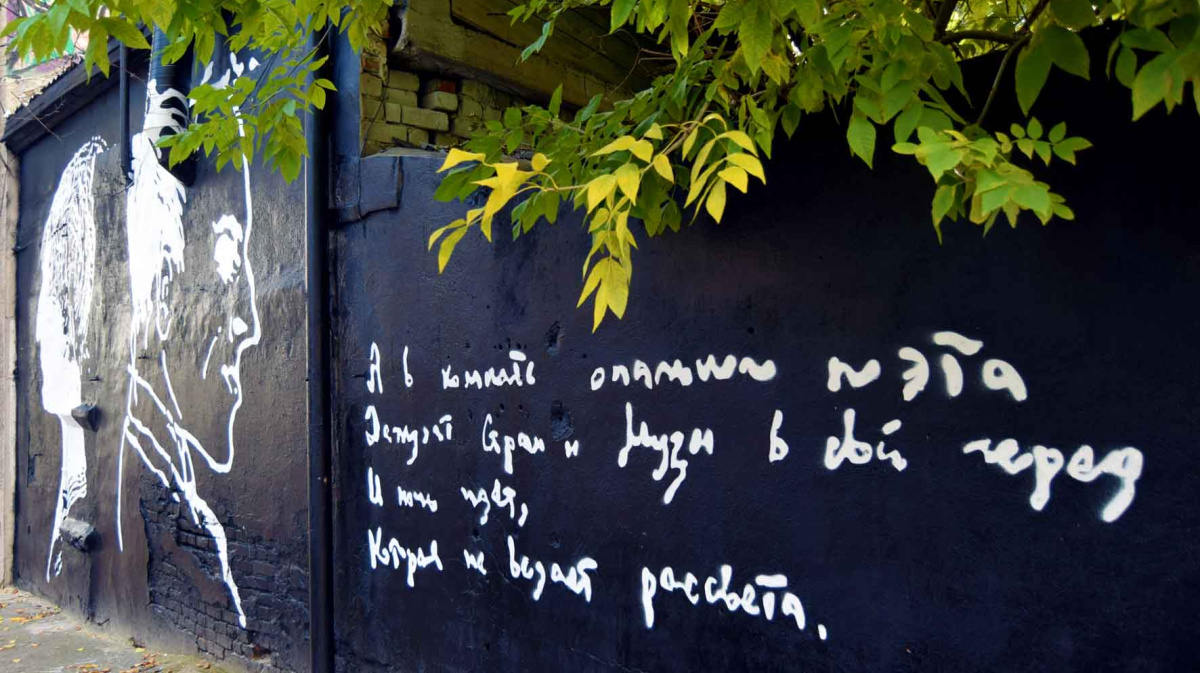 А в комнате опального поэта
Дежурят Страх и Муза в свой черед
И ночь идет,
Которая не ведает рассвета.